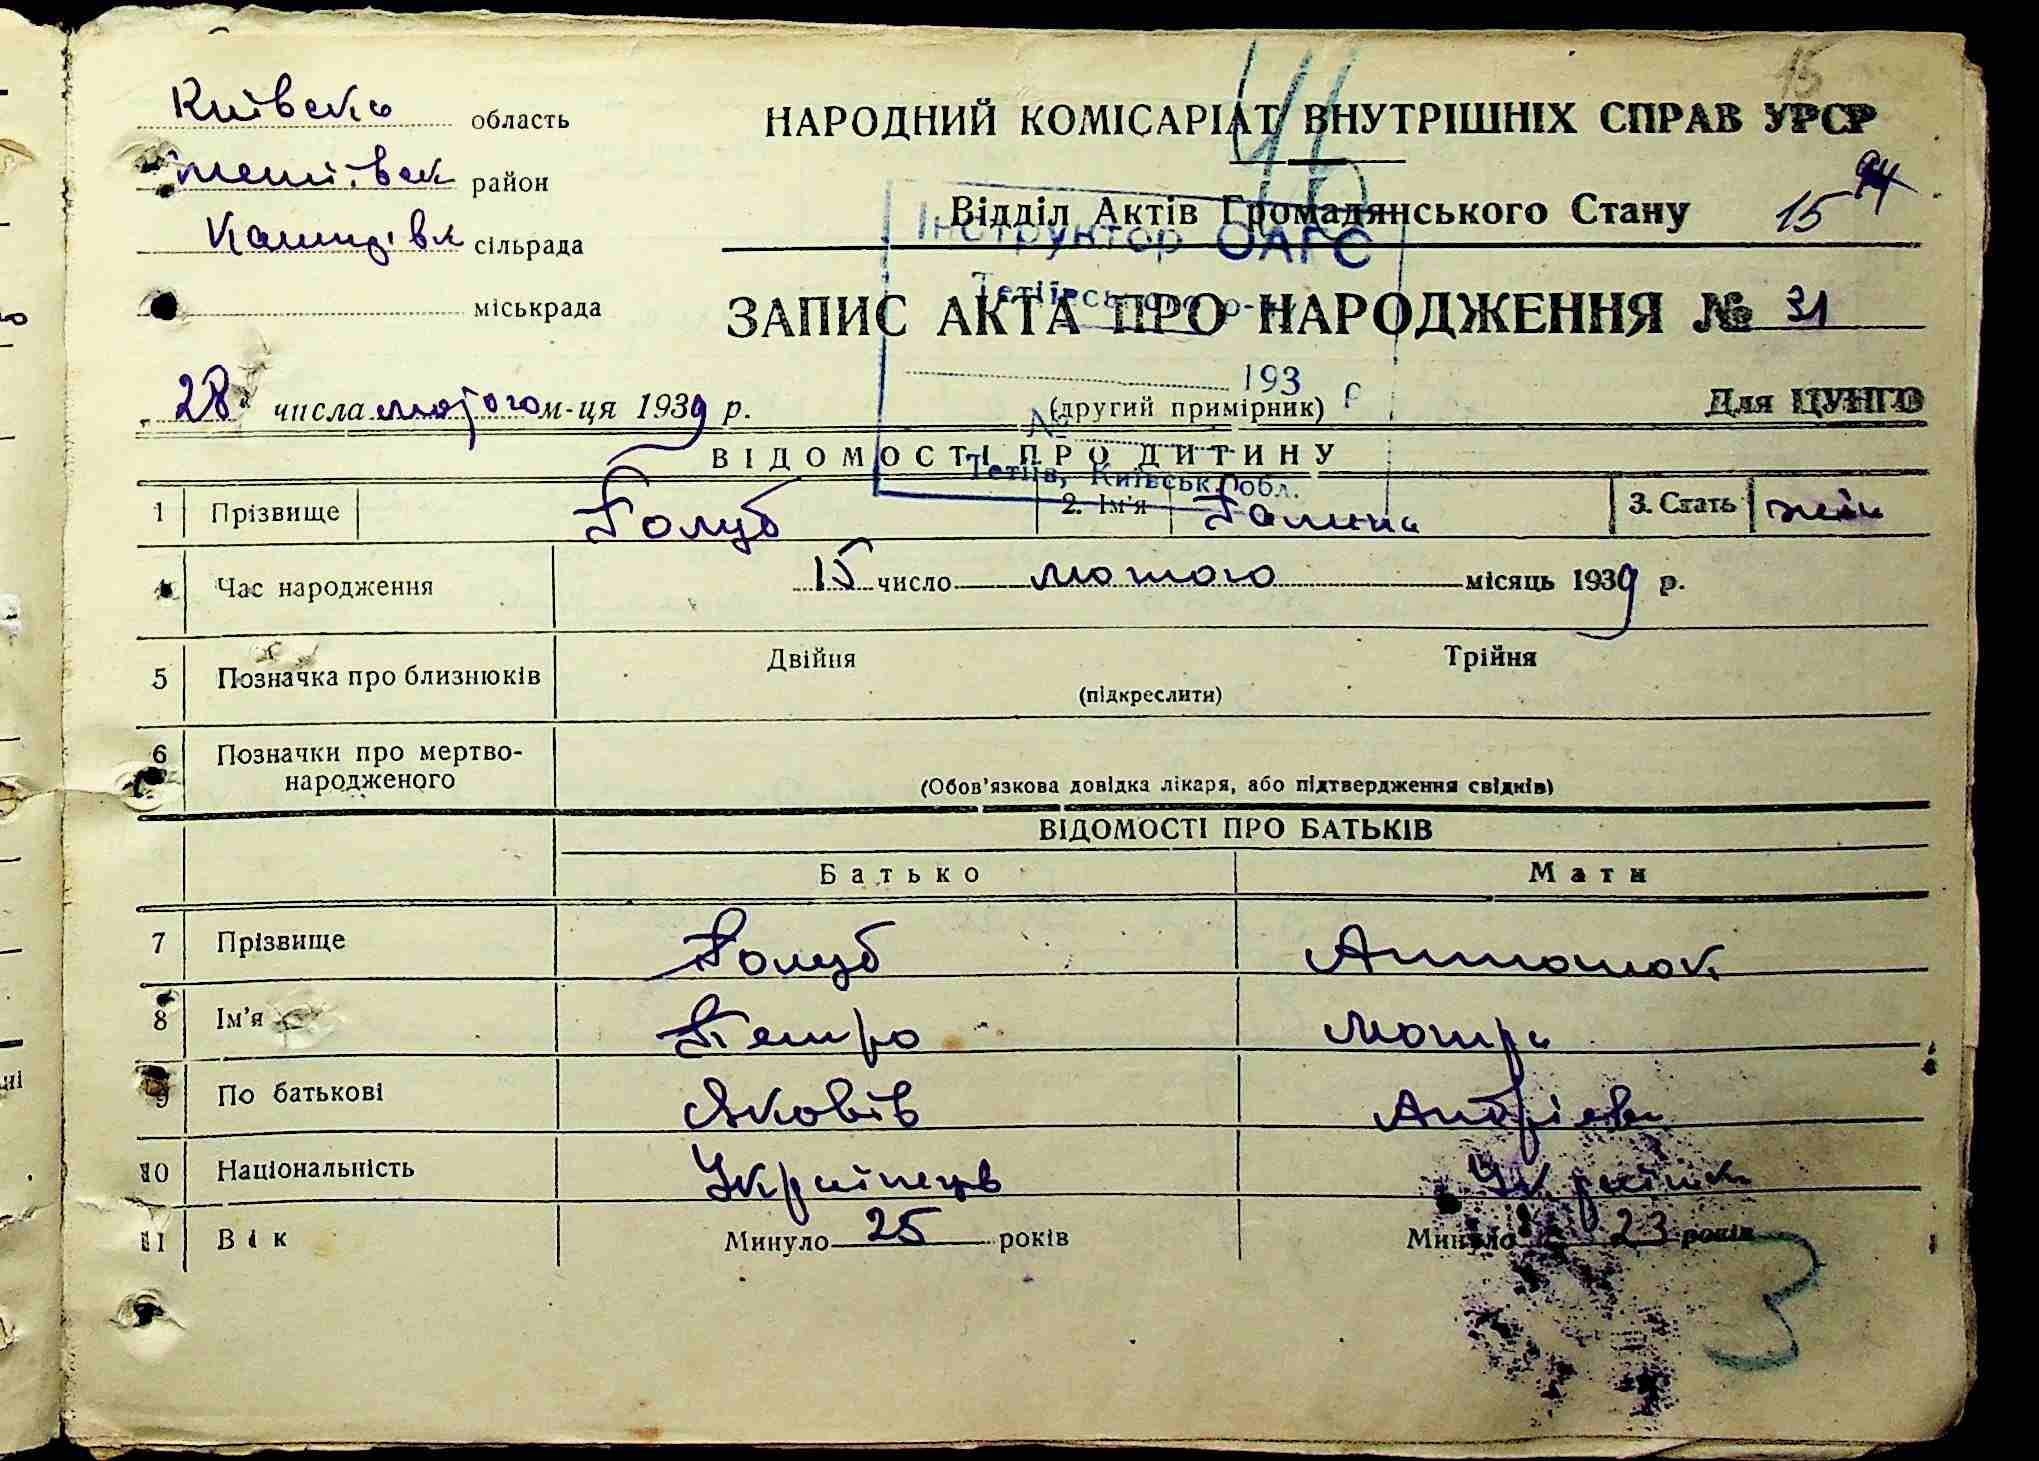 15
Київська область
НАРОДНИЙ КОМІСАРІАТ ВНУТРІШНІХ СПРАВ УРСР
Тетіївськ район
Відділ Актів Громадянського Стану 15
Інструктор ОАГС
сільрада
міськрада
Тетіївського р-
ЗАПИС АКТА ПРО НАРОДЖЕННЯ № 31
193 р
28 числа лютого м-ця 1939 р.
(другий примірник)
Для ЦУНГО
№
ВІДОМОСТІ ПРО ДИТИНУ
Тетіїв, Київськ. обл.
1 Прізвище Голуб 2. Ім'я Галина 3. Стать жін
4 Час народження 15 число лютого місяць 1939 р.
5 Позначка про близнюків Двійня Трійня
(підкреслити)
6 Позначки про мертво-
народженого
(Обов'язкова довідка лікаря, або підтвердження свідків)
ВІДОМОСТІ ПРО БАТЬКІВ
Батько Мати
7 Прізвище Голуб Антонюк
8 Ім'я Петро Мотря
9 По батькові Яковів Андрієва
10 Національність Українець Українка
11 Вік Минуло 25 років Минуло 23 років
3